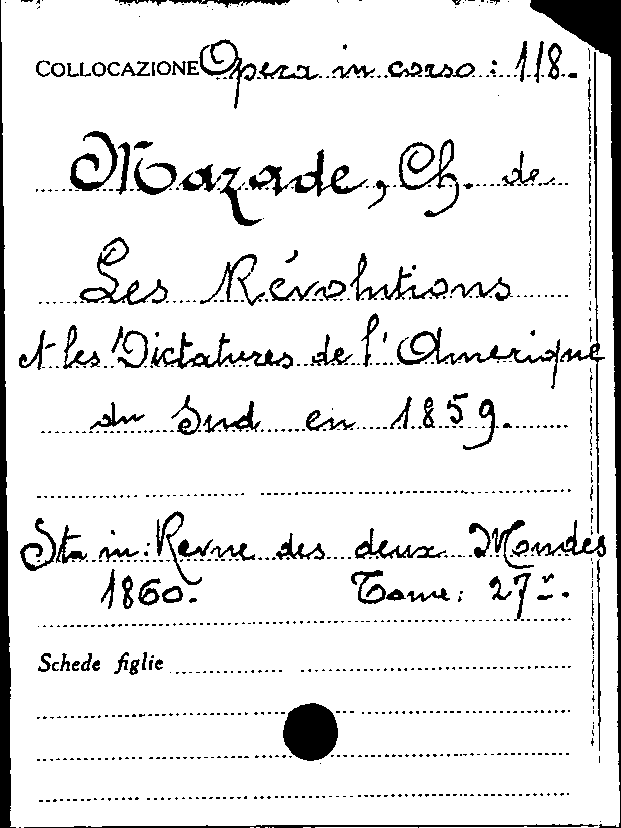 COLLOCAZIONE Opera in corso : 118.
Mazade, Ch. de
Les Révolutions
et les Dictatures de l'Amerique
du Sud en 1859.
Sta in: Revue des deux Mondes
1860. Tome: 27º.
Schede figlie